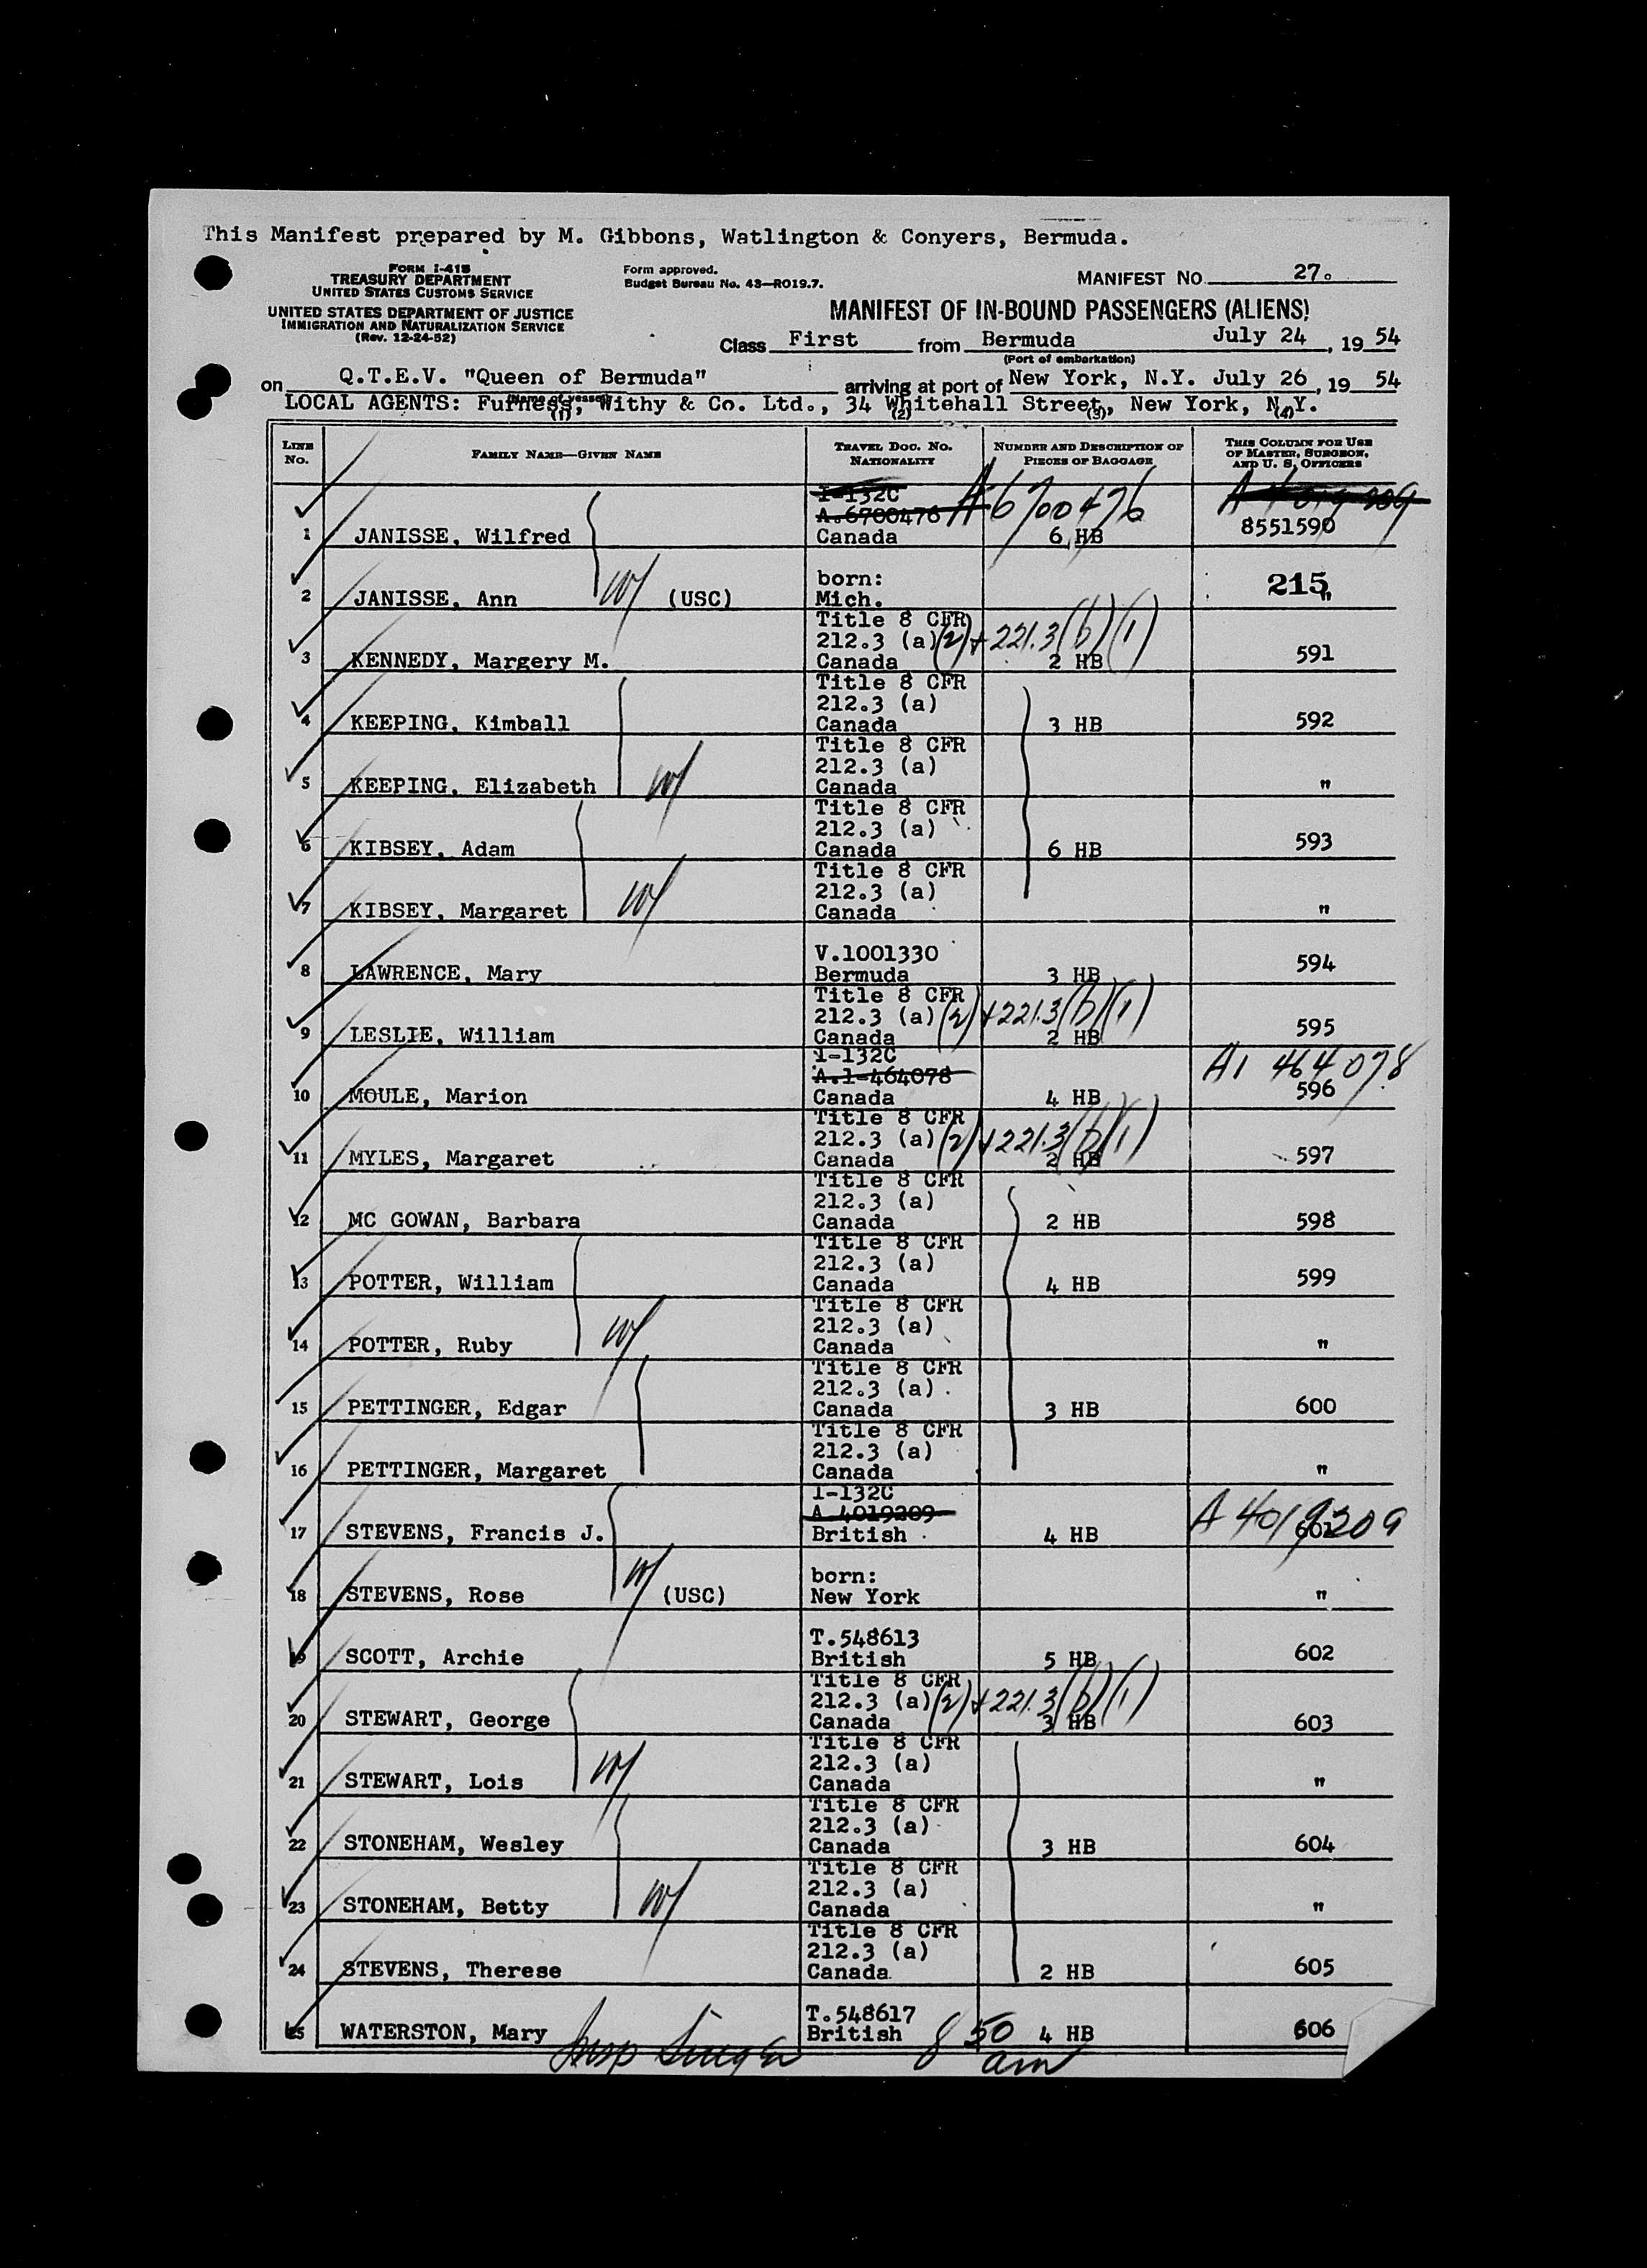 This Manifest prepared by M. Gibbons, Watlington & Conyers, Bermuda.
FORM I-418
TREASURY DEPARTMENT
UNITED STATES CUSTOMS SERVICE
UNITED STATES DEPARTMENT OF JUSTICE
IMMIGRATION AND NATURALIZATION SERVICE
(Rev. 12-24-52)
Form approved.
Budget Bureau No. 43—RO19.7.
MANIFEST NO. 27.
MANIFEST OF IN-BOUND PASSENGERS (ALIENS)
Class First from Bermuda July 24, 19 54
(Port of embarkation)
on Q.T.E.V. "Queen of Bermuda" arriving at port of New York, N.Y. July 26, 19 54
(Name of vessel)
LOCAL AGENTS: Furness, Withy & Co. Ltd., 34 Whitehall Street, New York, N.Y.
(1) (2) (3) (4)
LINE NO. FAMILY NAME—GIVEN NAME TRAVEL DOC. NO. NATIONALITY NUMBER AND DESCRIPTION OF PIECES OF BAGGAGE THIS COLUMN FOR USE OF MASTER, SURGEON, AND U. S. OFFICERS
I-132C
A.6700476 A 6700476 A 4019209
1 JANISSE, Wilfred Canada 6 HB 8551590
born:
2 JANISSE, Ann W/ (USC) Mich. 215 "
Title 8 CFR
212.3 (a) (2) + 221.3 (b) (1)
3 KENNEDY, Margery M. Canada 2 HB 591
Title 8 CFR
212.3 (a)
4 KEEPING, Kimball Canada 3 HB 592
Title 8 CFR
212.3 (a)
5 KEEPING, Elizabeth W/ Canada "
Title 8 CFR
212.3 (a)
6 KIBSEY, Adam Canada 6 HB 593
Title 8 CFR
212.3 (a)
7 KIBSEY, Margaret W/ Canada "
V.1001330
8 LAWRENCE, Mary Bermuda 3 HB 594
Title 8 CFR
212.3 (a) (2) + 221.3 (b) (1)
9 LESLIE, William Canada 2 HB 595
I-132C
A.1-464078 A1 464078
10 MOULE, Marion Canada 4 HB 596
Title 8 CFR
212.3 (a) (2) + 221.3 (b) (1)
11 MYLES, Margaret Canada 2 HB 597
Title 8 CFR
212.3 (a)
12 MC GOWAN, Barbara Canada 2 HB 598
Title 8 CFR
212.3 (a)
13 POTTER, William Canada 4 HB 599
Title 8 CFR
212.3 (a)
14 POTTER, Ruby W/ Canada "
Title 8 CFR
212.3 (a)
15 PETTINGER, Edgar Canada 3 HB 600
Title 8 CFR
212.3 (a)
16 PETTINGER, Margaret Canada "
I-132C
A 4019209 A 4019209
17 STEVENS, Francis J. British 4 HB 601
born:
18 STEVENS, Rose W/ (USC) New York "
T.548613
19 SCOTT, Archie British 5 HB 602
Title 8 CFR
212.3 (a) (2) + 221.3 (b) (1)
20 STEWART, George Canada 3 HB 603
Title 8 CFR
212.3 (a)
21 STEWART, Lois W/ Canada "
Title 8 CFR
212.3 (a)
22 STONEHAM, Wesley Canada 3 HB 604
Title 8 CFR
212.3 (a)
23 STONEHAM, Betty W/ Canada "
Title 8 CFR
212.3 (a)
24 STEVENS, Therese Canada 2 HB 605
T.548617
25 WATERSTON, Mary British 4 HB 606
Insp Singer 8 50 am